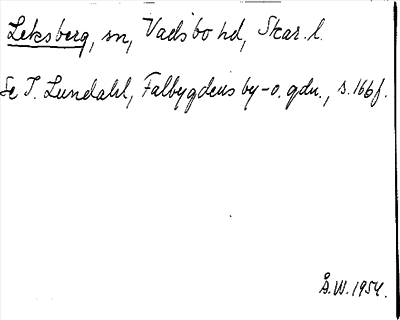 Leksberg, sn, Vadsbo hd, Skar. l.
Se I. Lundahl, Falbygdens by- o. gdn., s. 166f.
Å.W. 1954.